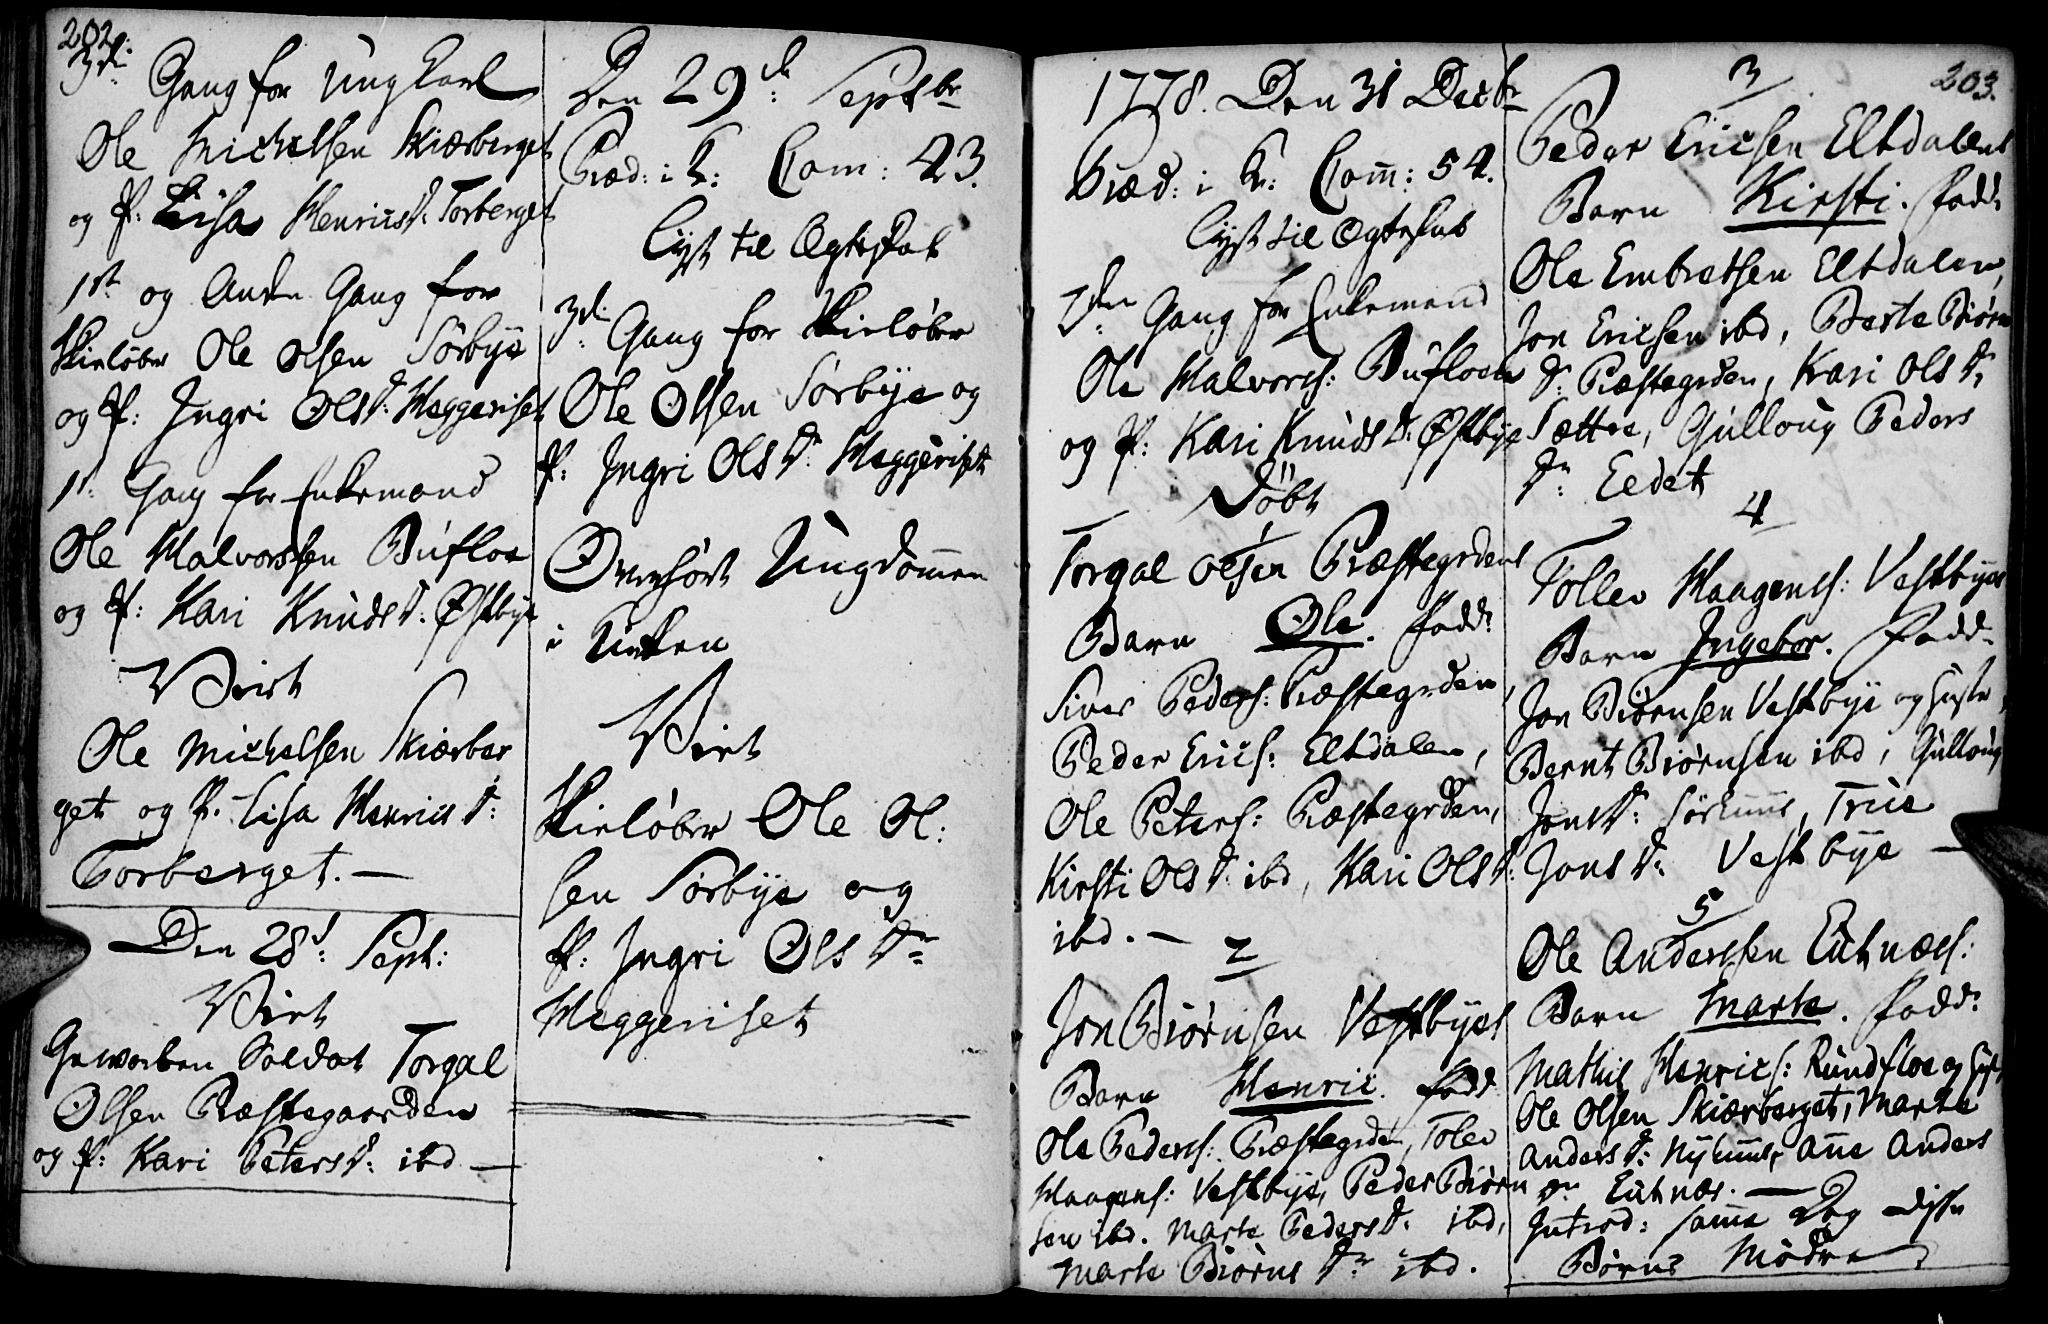 202.
3d: Gang for Ung Karl
Ole Michelsen Skiærberget
og P: Lisa Henricsd: Torberget
1st og Anden Gang for
Skieløber Ole Olsen Sørbye
og P: Ingri Olsd: Heggeriset
1st: Gang for Enkemand
Ole Halvorssen Bufloe
og P: Kari Knudsd: Østbye
Viet
Ole Michelsen Skiærber
get og P. Lisa Henricsd:
Torberget. —
Den 28d: Sept:
Viet
Geworben Soldat Torgal
Olsen Præstegaarden
og P: Kari Petersd: ibd —
Den 29de: Septbr
Præd: i K: Com: 43.
Lyst til Ægteskab
3d: Gang for Skieløber
Ole Olsen Sørbye og
P: Ingri Olsdr: Heggeriset
Overhørt Ungdommen
i Kirken
Viet
Skieløber Ole Ol:
sen Sørbye og
P: Ingri Olsdr
Heggeriset
1778. Den 31 Decbr
Præd: i K: Com̄: 54.
Lyst til Ægteskab
den Gang for Enkemand
Ole Halvors: Bufloen
og P: Kari Knudsd: Østbye
Døbt
1
Torgal Olsen Præstegrdens
Barn Ole. Fadd:
Siver Peders: Præstegrden,
Peder Erics: Eltdalen,
Ole Peters: Præstegrden,
Kirsti Olsd: ibd, Kari Olsd:
ibd. —
2
Jon Biørnsen Vestbyes
Barn Henric. Fadd
Ole Peders: Præstegrden, Tolev
Haagens: Vestbye, Peder Biørn
sen ibd. Marte Pedersd: ibd,
Marte Biørnsdr: ibd.
203.
3
Peder Ericsen Eltdalens
Barn Kirsti. Fadd:
Ole Embretsen Eltdalen,
Jon Ericsen ibd, Berte Biørn
d: Præstegrden, Kari Olsd:
Sættre, Gulloug Peders
dr: Eedet
4
Tollev Haagens: Vestbyes
Barn Ingebor. Fadd:
Jon Biørnsen Vestbye og Hustr,
Bernt Biørnsen ibd, Gulloug
Jonsd: True
Jonsd: Vestbye —
5
Ole Anderssen Lutnæs:
Barn Marte. Fadd:
Mathis Henrics: Rundfloe og Hust
Ole Olsen Skiærberget, Marte
Andersd: Anne Anders
dr Lutnæs. —
Introd: samme Dag disse
Børns Mødre